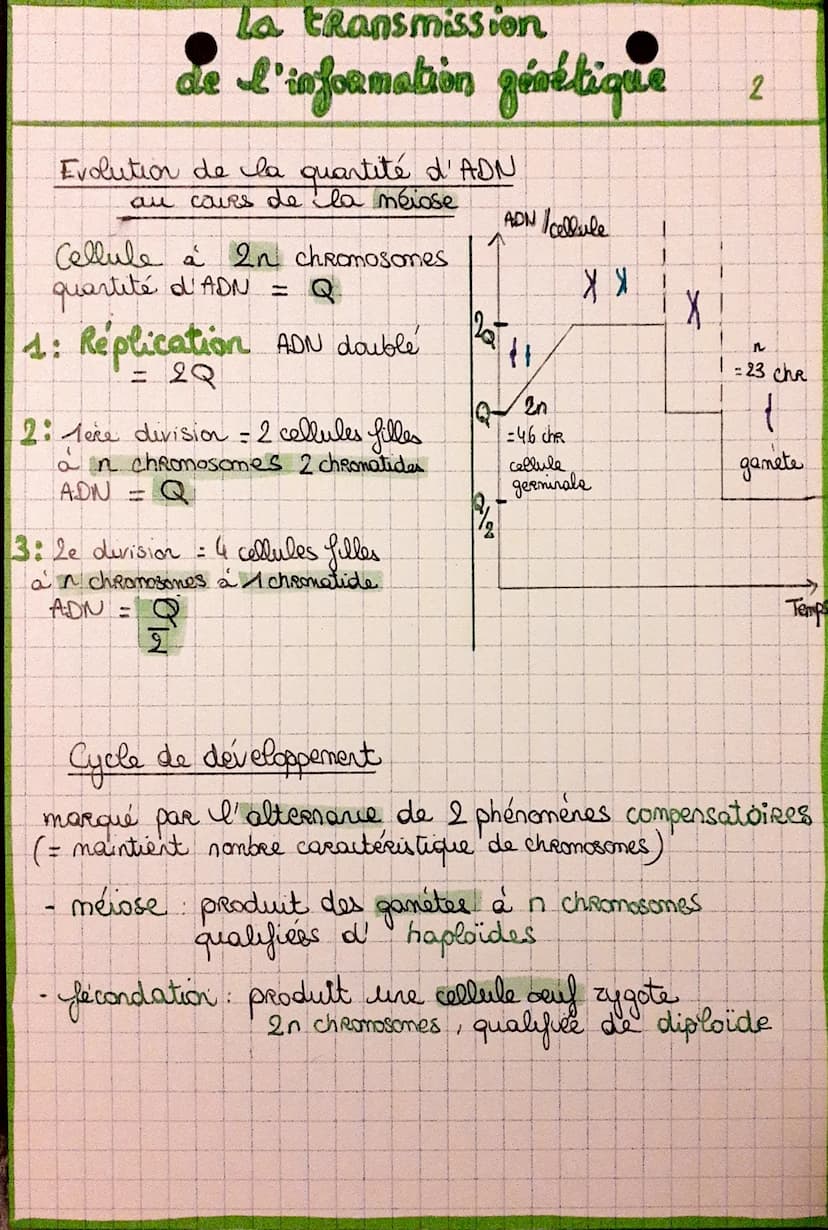 La transmission
de l'information génétique
2
Evolution de la quantité d'ADN
au cours de la méiose
Cellule à 2n chromosomes
quantité d'ADN = Q
1: Réplication ADN doublé
= 2Q
2: 1ère division = 2 cellules filles
à n chromosomes 2 chromatides
ADN = Q
3: 2e division = 4 cellules filles
à n chromosomes à 1 chromatide
ADN = Q/2
ADN/cellule
2Q
Q
Q/2
2n
=46 chr
cellule
germinale
n
=23 chr
gamète
Temps
Cycle de développement
marqué par l'alternance de 2 phénomènes compensatoires
(= maintient nombre caractéristique de chromosomes)
- méiose : produit des gamètes à n chromosomes
qualifiées d' haploïdes
- fécondation : produit une cellule oeuf zygote
2n chromosomes, qualifiée de diploïde